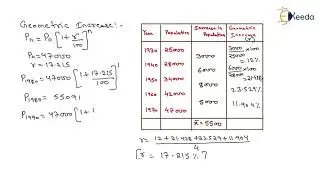 Keeda
Geometric Increase:-
Pn = Po [1 + r/100]^n
Po = 47000
r = 17.215
[1 + 17.215/100]^1
P1980 = 55091
P1990 = 47000 [1 + 
Year Population Increase in Population Geometric Increase (r)
1930 25000
3000 3000/25000 ×100 = 12%
1940 28000
6000 6000/28000 ×100
1950 34000
8000 23.529%
1960 42000
5000 11.904%
1970 47000
x̄ = 5500
r = 12 + 21.428 + 23.529 + 11.904 / 4
[r = 17.215%]